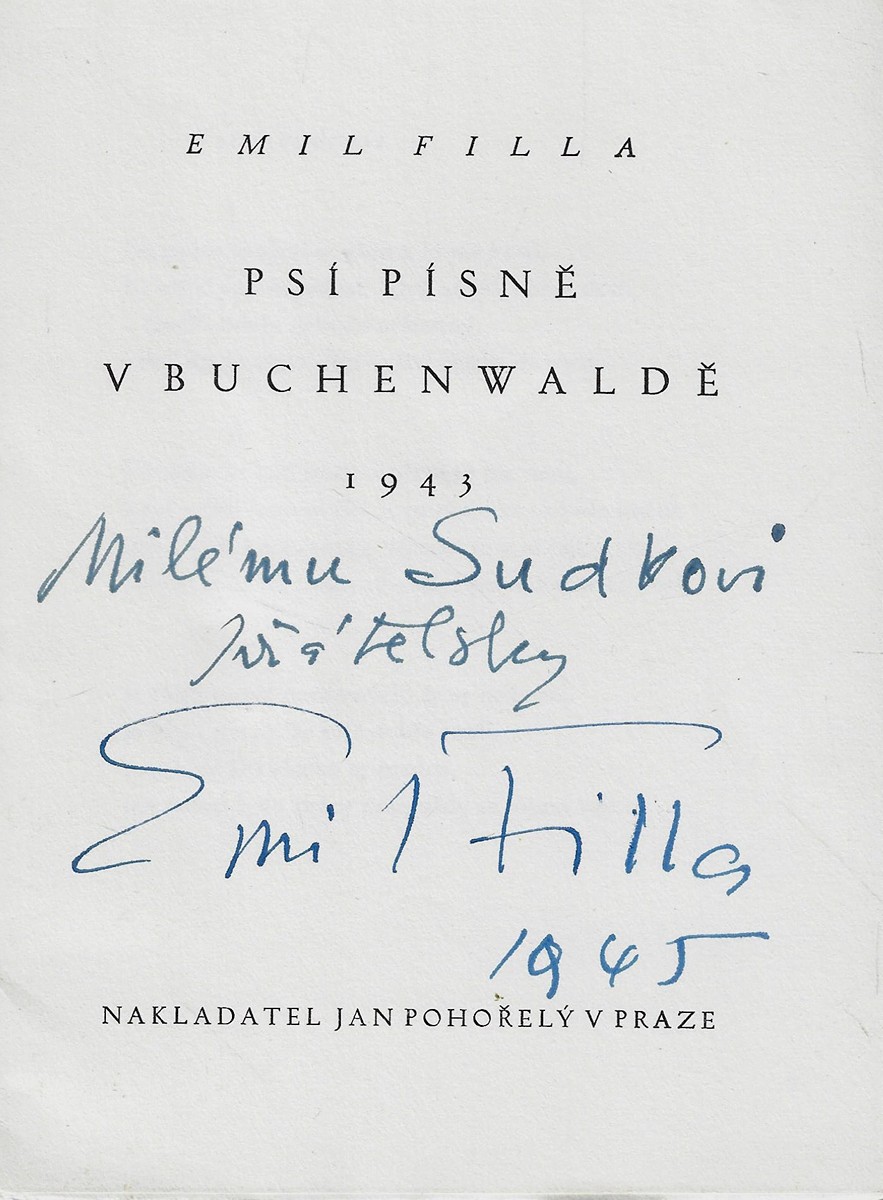 EMIL FILLA
PSÍ PÍSNĚ
V BUCHENWALDĚ
1943
Milému Sudkovi
přátelsky
Emil Filla
1945
NAKLADATEL JAN POHOŘELÝ V PRAZE